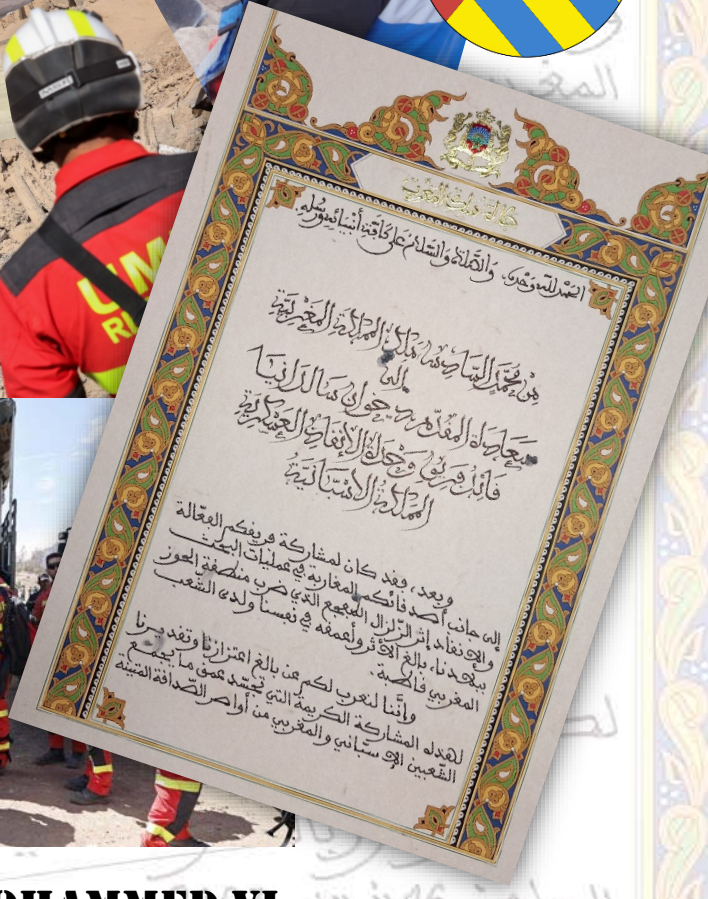 UM
R
جلالة ملك المغرب
الحمد لله وحده، والصلاة والسلام على كافة أنبيائه ورسله
من محمد السادس ملك المملكة المغربية
إلى
سعادة المقدم خوان سالدانيا
قائد فريق وحدة الإنقاذ العسكرية
المملكة الاسبانية
وبعد، وفد كان لمشاركة فريفكم الفعالة
إلى جانب أصدفائكم المغاربة في عمليات البحث
والإنفاذ إثر الزلزال المفجع الذي ضرب منطفة الحوز
ببلادنا، بالغ الأثر وأعمفه في نفسنا ولدى الشعب
المغربي فاطبة.
وإننا لنعرب لكم عن بالغ اعتزازنا وتفديرنا
لهذه المشاركة الكريمة التي تجسد عمق ما يجمع
الشعبين الإسباني والمغربي من أواصر الصدافة المتينة
OHAMMED VI